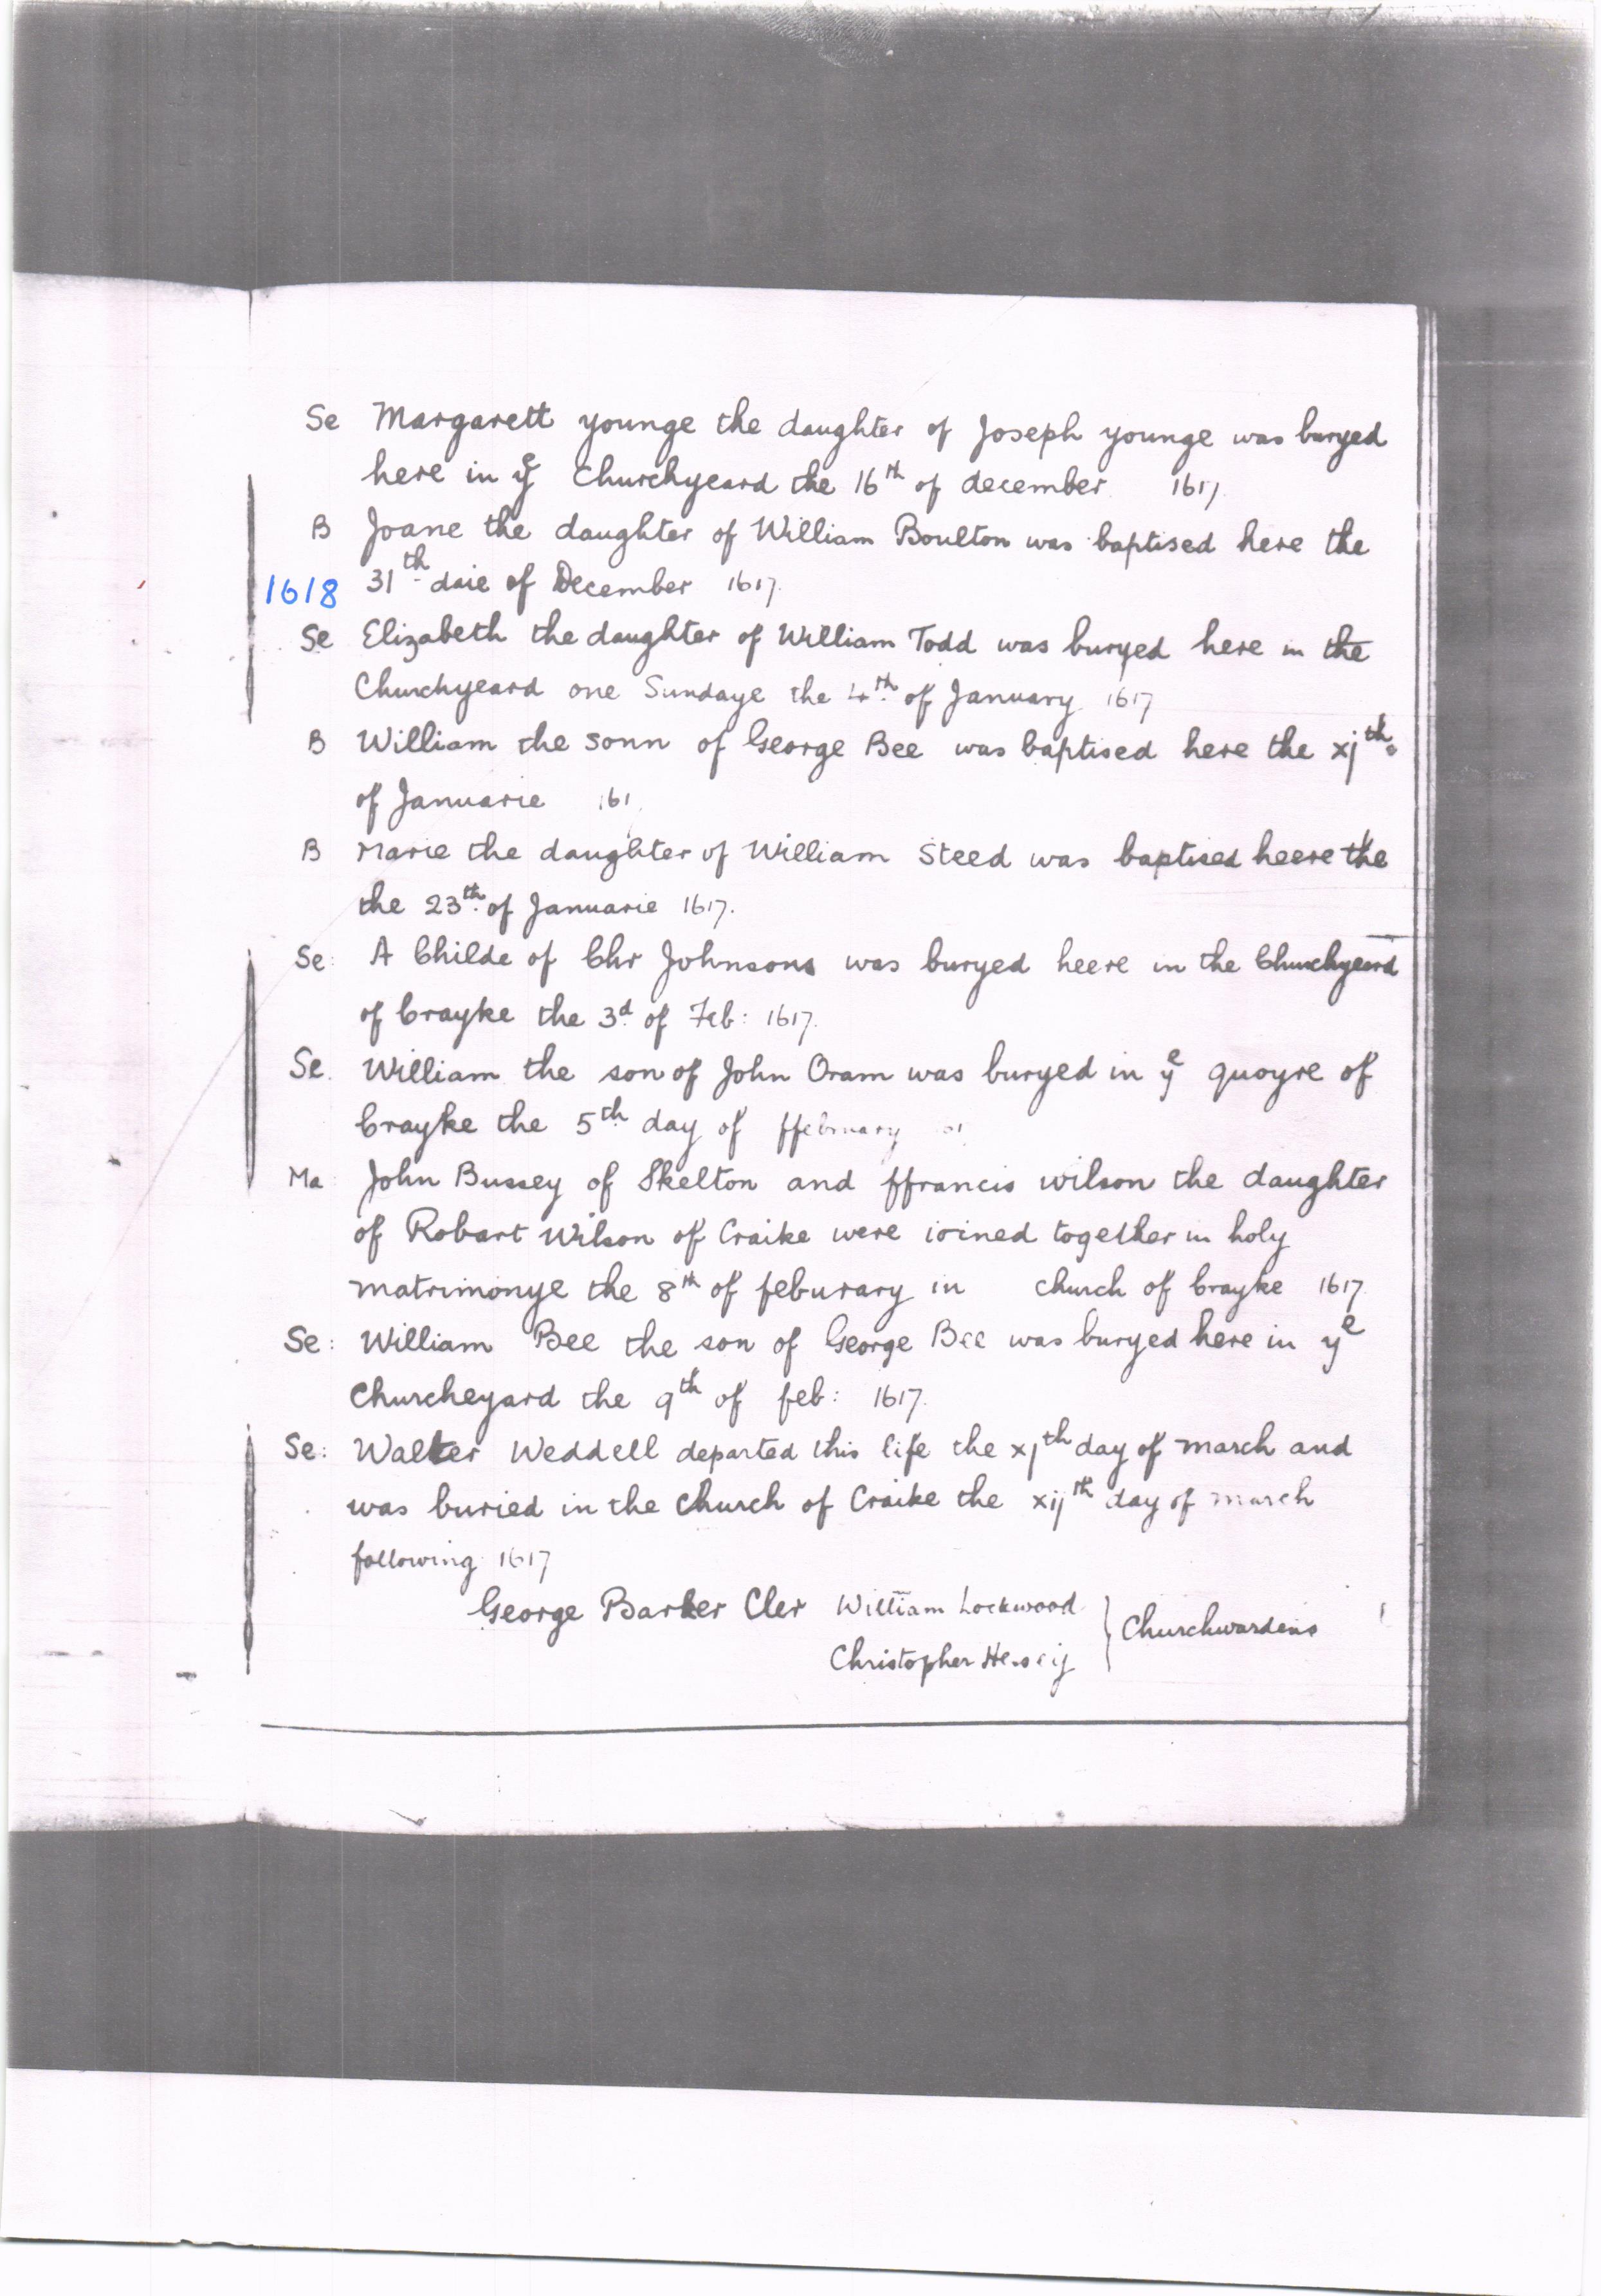 Se Margarett younge the daughter of Joseph younge was buryed
here in yᵉ Churchyeard the 16th of december 1617
B Joane the daughter of William Boulton was baptised here the
1618 31th daie of December 1617.
Se Elizabeth the daughter of William Todd was buryed here in the
Churchyeard one Sundaye the 4th of January 1617
B William the sonn of George Bee was baptised here the xjth
of Januarie 161
B Marie the daughter of William Steed was baptised heere the
the 23th of Januarie 1617.
Se: A Childe of Chr Johnsons was buryed heere in the Churchyeard
of Crayke the 3d of Feb: 1617.
Se. William the son of John Oram was buryed in yᵉ quoyre of
Crayke the 5th day of ffebruary
Ma John Bussey of Skelton and ffrancis wilson the daughter
of Robart Wilson of Craike were ioined together in holy
matrimonye the 8th of feburary in church of Crayke 1617
Se: William Bee the son of George Bee was buryed here in yᵉ
Churcheyard the 9th of feb: 1617.
Se: Walter Weddell departed this life the xjth day of march and
was buried in the Church of Craike the xijth day of march
following 1617
George Barker Cler William Lockwood
Christopher } Churchwardens